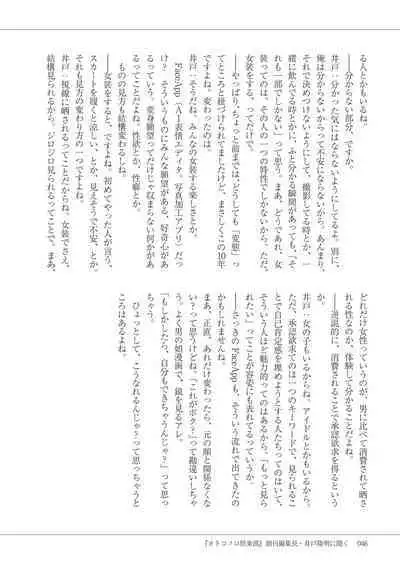 る人とかもいるね。
――分からない部分、ですか。
井戸:分かった気にはならないようにしてるよ。別に、
俺は分からないからって不安にならないから。あんまり、
それで決めつけないようにして、撮影してる時とか、一
緒に飲んでる時とかに、ふと分かる瞬間があっても、「そ
れも一部でしかない」って思う。まあ、どうであれ、女
装ってのは、その人の一つの特性でしかないから。ただ、
女装をする、ってだけで。
――やっぱり、ちょっと前までは、どうしても「変態」っ
てところと紐づけられてましたけど、まさしくこの10年
ですよね。変わったのは。
井戸:そうだね。みんなの女装する楽しさとか。
FaceApp(AI表情エディタ、写真加工アプリ)だっ
け? そういうものにみんな願望がある、好奇心があ
るっていう。変身願望ってだけじゃ収まらない何かがあ
るってことだよね。性欲とか、性癖とか。
ものの見方も結構変わるしね。
――女装をすると、ですよね。初めてやった人が言う、
スカートを履くと涼しい、とか、見えそうで不安、とか。
それも見方の変わり方の一つですよね。
井戸:視線に晒されるってことだからね、女装でさえ。
結構見られるから。ジロジロ見られるってことで。まあ、
どれだけ女性っていうのが、男に比べて消費されて晒さ
れる性なのか、体験して分かることだよね。
――逆説的に、消費されることで承認欲求を得るという
か。
井戸:女の子もいるからね。アイドルとかもいるから。
ただ、承認欲求てのは一つのキーワードで、見られるこ
とで自己肯定感を埋めようとする人たちってのはいて、
そういう人ほど魅力的ってのはあるから。「もっと見ら
れたい」ってことが容姿にも表れてるっていうか。
――さっきのFaceAppも、そういう流れで出てきたの
かもしれませんね。
まあ、正直、あれだけ変わったら、元の顔と関係なくな
い? って思うけどね。「これがボク?」って勘違いしちゃ
う。よく男の娘漫画で、鏡を見るアレ。
「もしかしたら、自分もできちゃうんじゃ?」って思っ
ちゃう。
ひょっとして、こうなれるんじゃ? って思っちゃうと
ころはあるよね。
『オトコノコ倶楽部』創刊編集長・井戸隆明に聞く 046